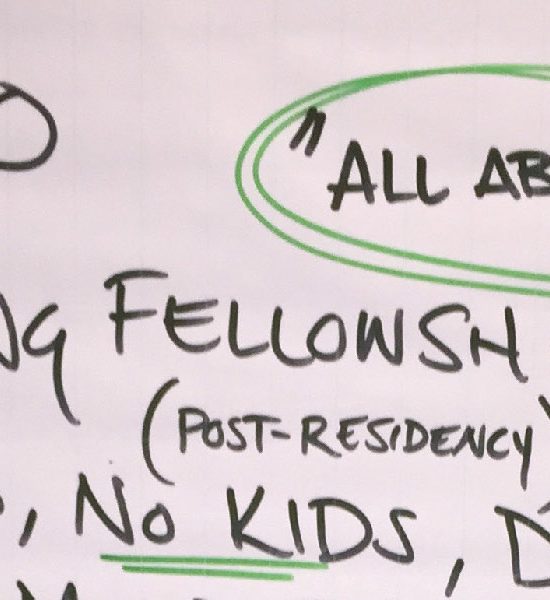 "ALL AB
FELLOWSH
(POST-RESIDENCY)
, NO KIDS, D